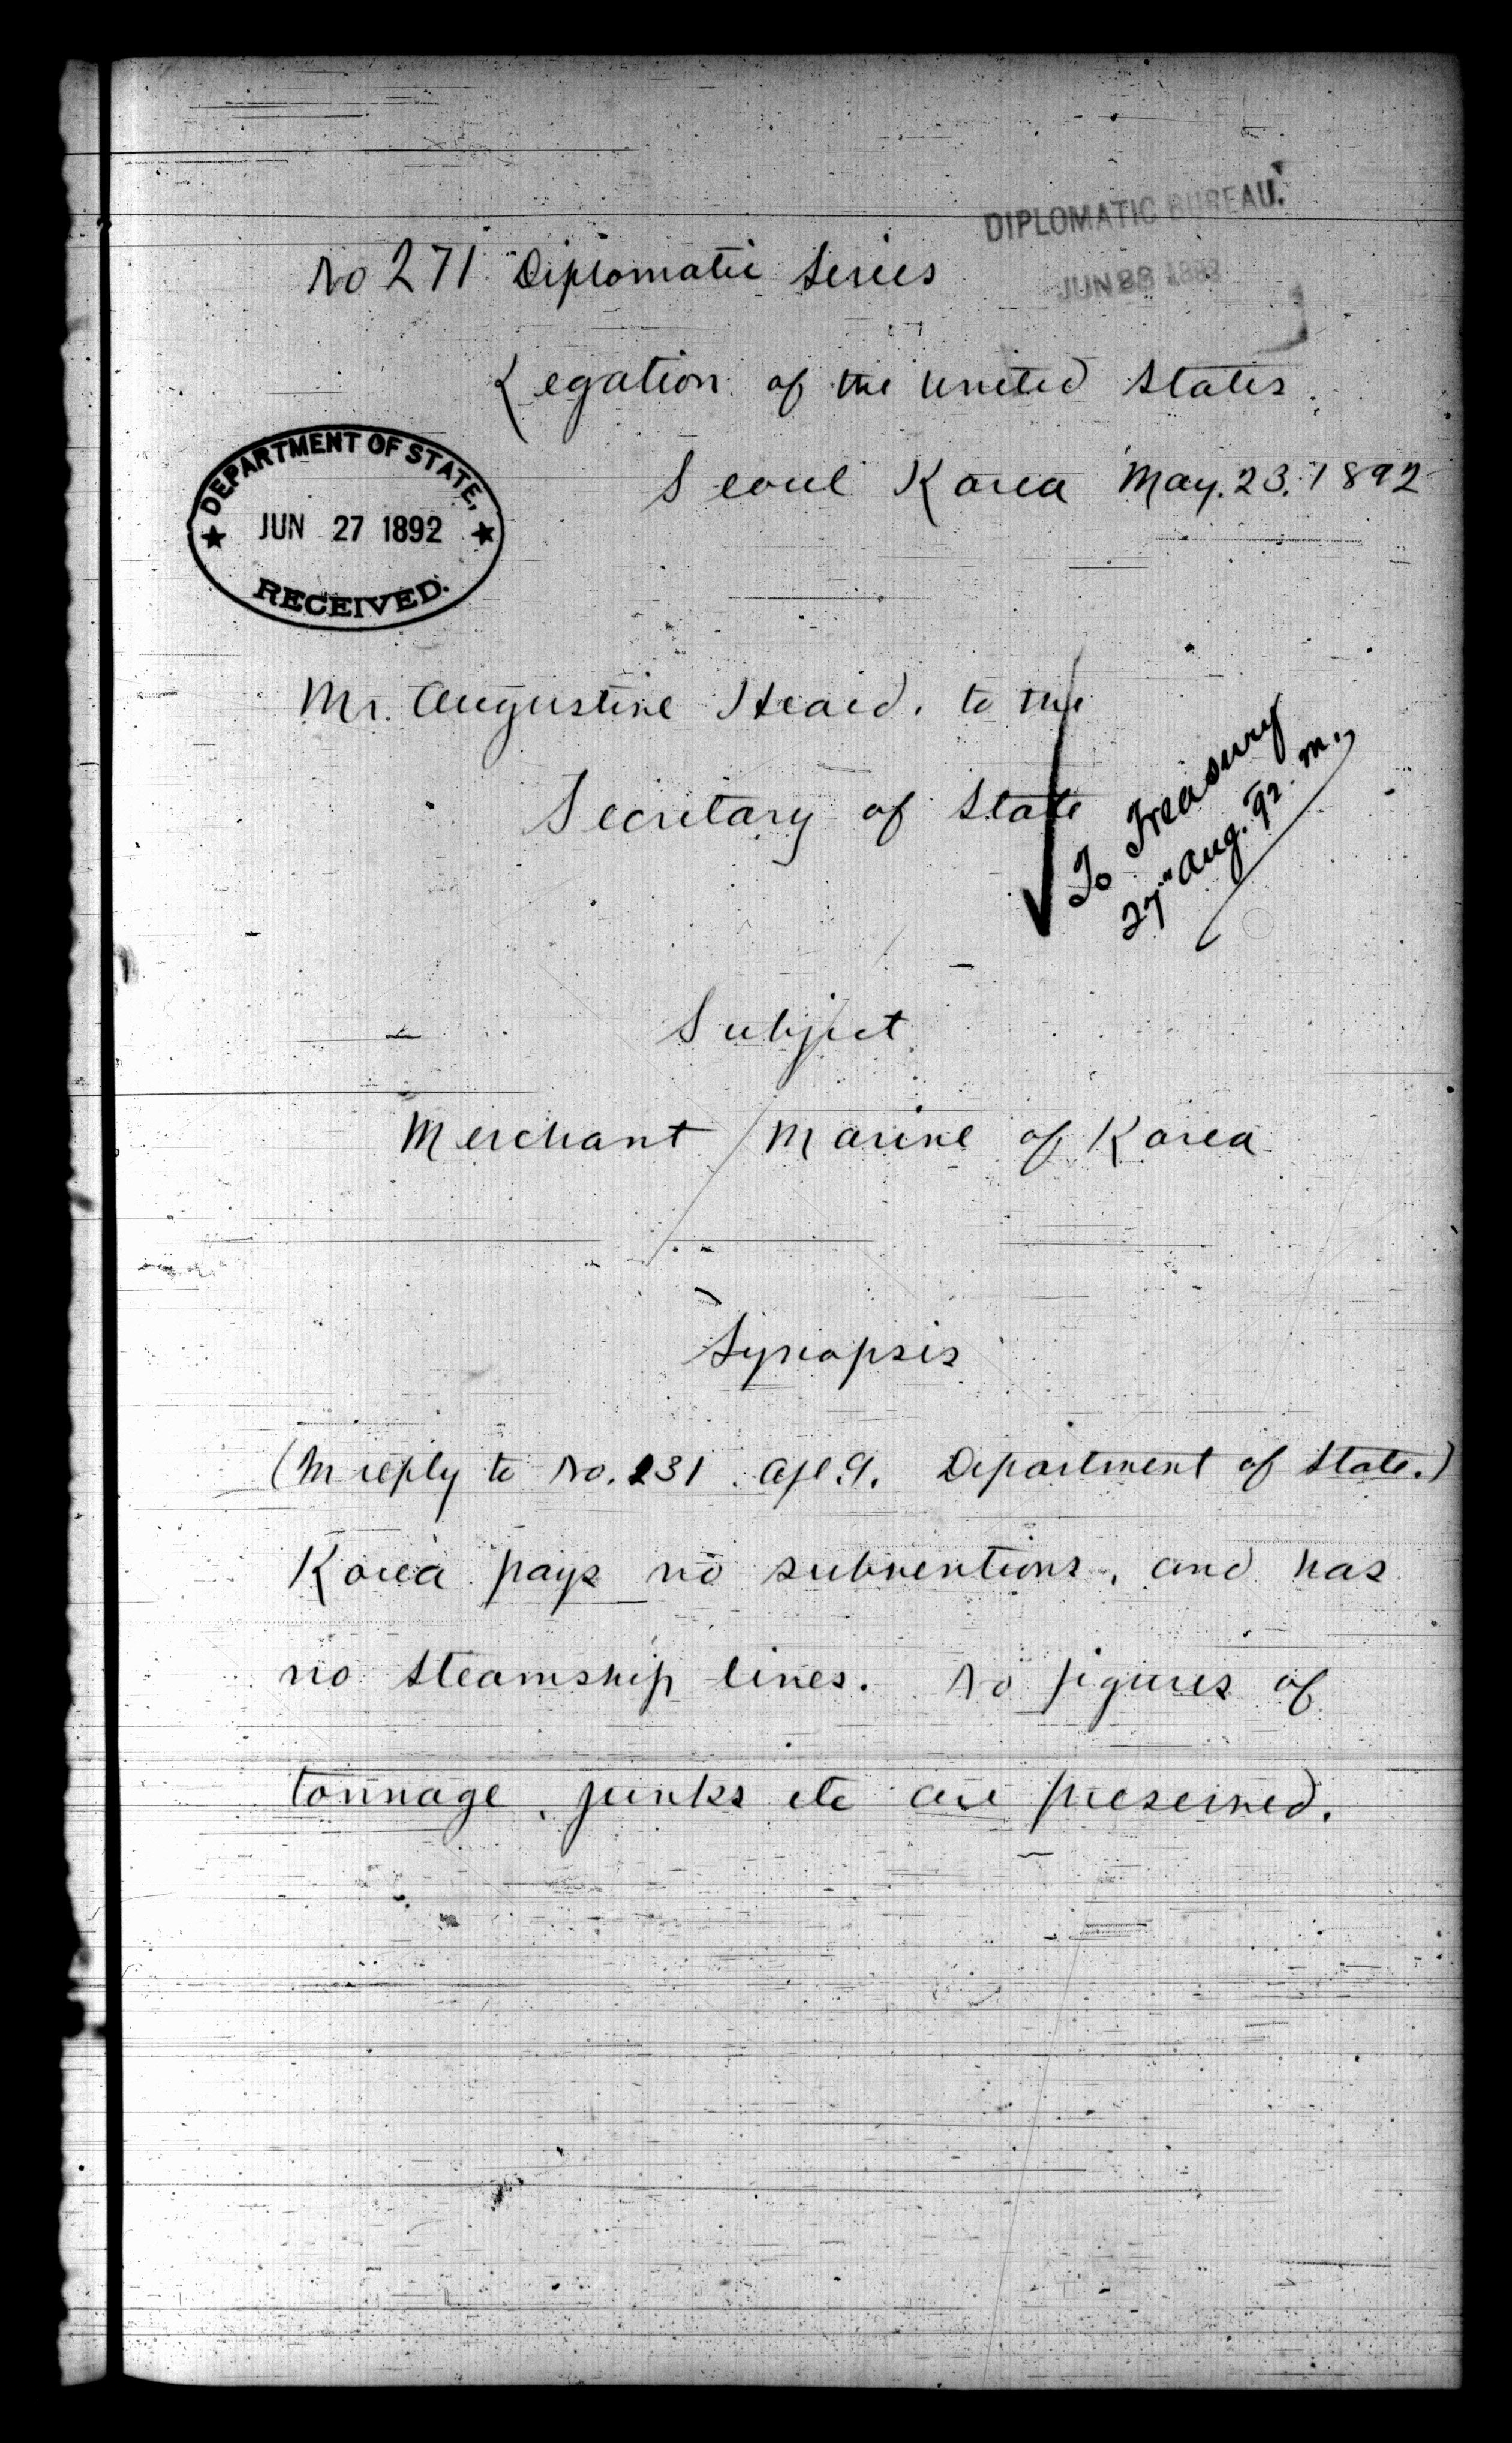 DIPLOMATIC BUREAU.
No 271 Diplomatic Series
Legation of the United States.
DEPARTMENT OF STATE,
JUN 27 1892
RECEIVED.
Seoul Korea May. 23. 1892
Mr. Augustine Heard. to the
Secretary of State
To Treasury
27" Aug. 92. m.,
Subject
Merchant Marine of Korea
Synopsis
(In reply to No. 231. Apl. 9. Department of State.)
Korea pays no subventions, and has
no steamship lines. No figures of
tonnage, junks etc are preserved.